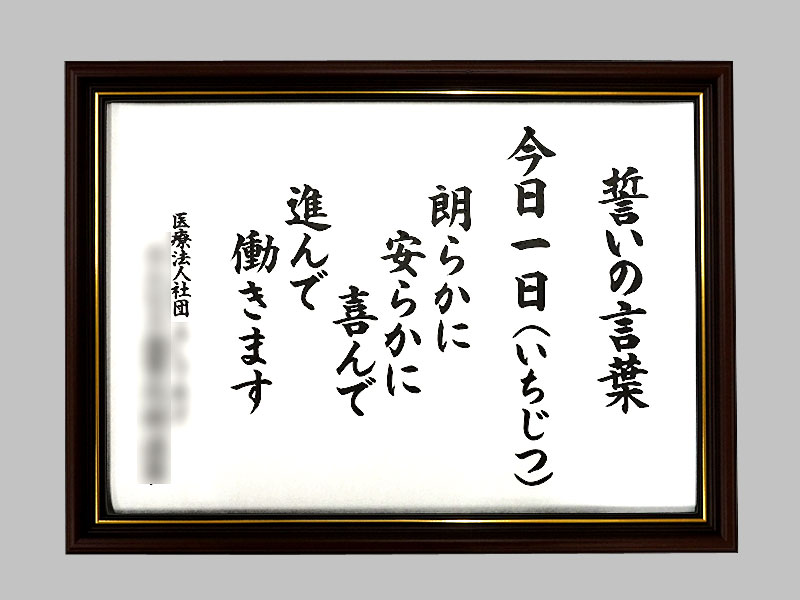 誓いの言葉
今日一日（いちじつ）
朗らかに
安らかに
喜んで
進んで
働きます
医療法人社団